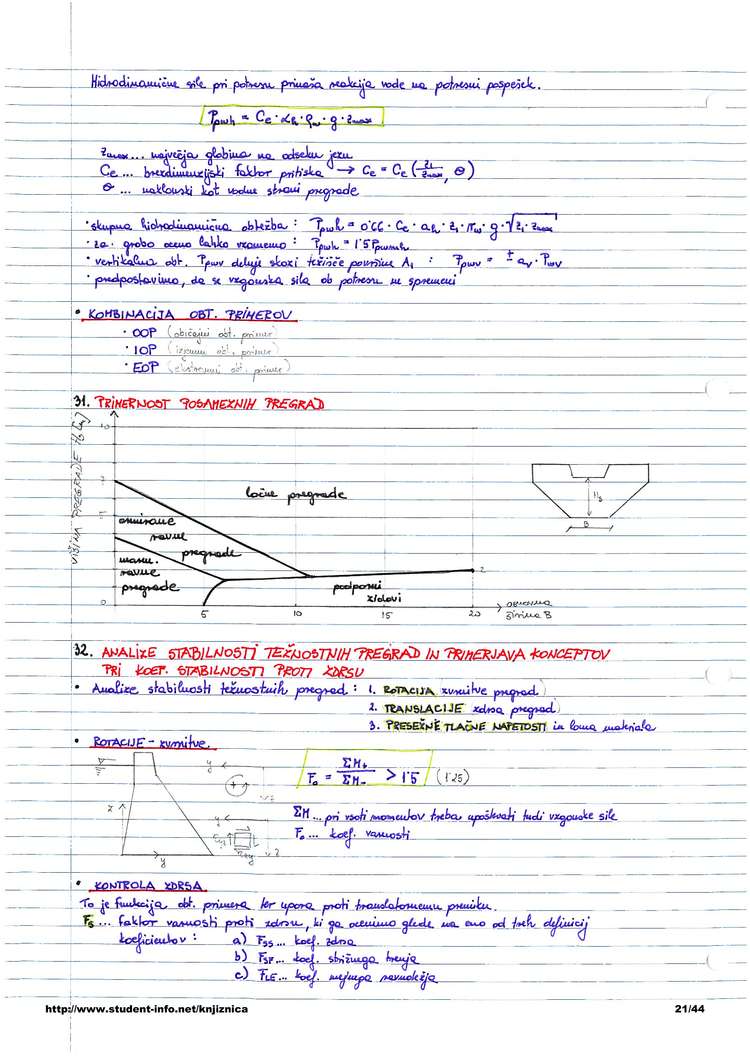 Hidrodinamične sile pri potresu prinaša reakcija vode na potresni pospešek.
Ppwh = Ce · αh · ρw · g · zmax
zmax ... največja globina na odseku jezu
Ce ... brezdimenzijski faktor pritiska → Ce = Ce (z1/zmax, θ)
θ ... naklonski kot vodne strani pregrade
· skupna hidrodinamična obtežba : Ppwh = 0'66 · Ce · ah · z1 · πw · g · √z1 · zmax
· za grobo oceno lahko vzamemo : Ppwh = 1'5 Ppwmeh
· vertikalna obt. Ppwv deluje skozi težišče površine A1 : Ppwv = ± av · Pwv
· predpostavimo, da se vzgonska sila ob potresu ne spremeni
• KOMBINACIJA OBT. PRIMEROV
· OOP (običajni obt. primer)
· IOP (izjemni obt. primer)
· EOP (ekstremni obt. primer)
31. PRIMERNOST POSAMEZNIH PREGRAD
VIŠINA PREGRADE Hb [m]
ločne pregrade
armirane
ravne
pregrade
masu.
ravne
pregrade
podporni
zidovi
Hb
B
0 5 10 15 20
osnovna
širina B
32. ANALIZE STABILNOSTI TEŽNOSTNIH PREGRAD IN PRIMERJAVA KONCEPTOV
PRI KOEF. STABILNOSTI PROTI ZDRSU
• Analize stabilnosti težnostnih pregrad : 1. ROTACIJA zvrnitve pregrad
2. TRANSLACIJE zdrsa pregrad
3. PRESEŽNE TLAČNE NAPETOSTI in loma materiala
• ROTACIJE - zvrnitve.
Fo = ΣM+ / ΣM- > 1'5 (1'25)
z
y
y
y
z
z
ΣM ... pri vsoti momentov treba upoštevati tudi vzgonske sile
Fo ... koef. varnosti
• KONTROLA ZDRSA
To je funkcija obt. primera ter upora proti translatornemu premiku.
Fs ... faktor varnosti proti zdrsu, ki ga ocenimo glede na eno od treh definicij
koeficientov : a) FSS ... koef. zdrsa
b) FSF ... koef. strižnega trenja
c) FLE ... koef. mejnega ravnotežja
http://www.student-info.net/knjiznica 21/44